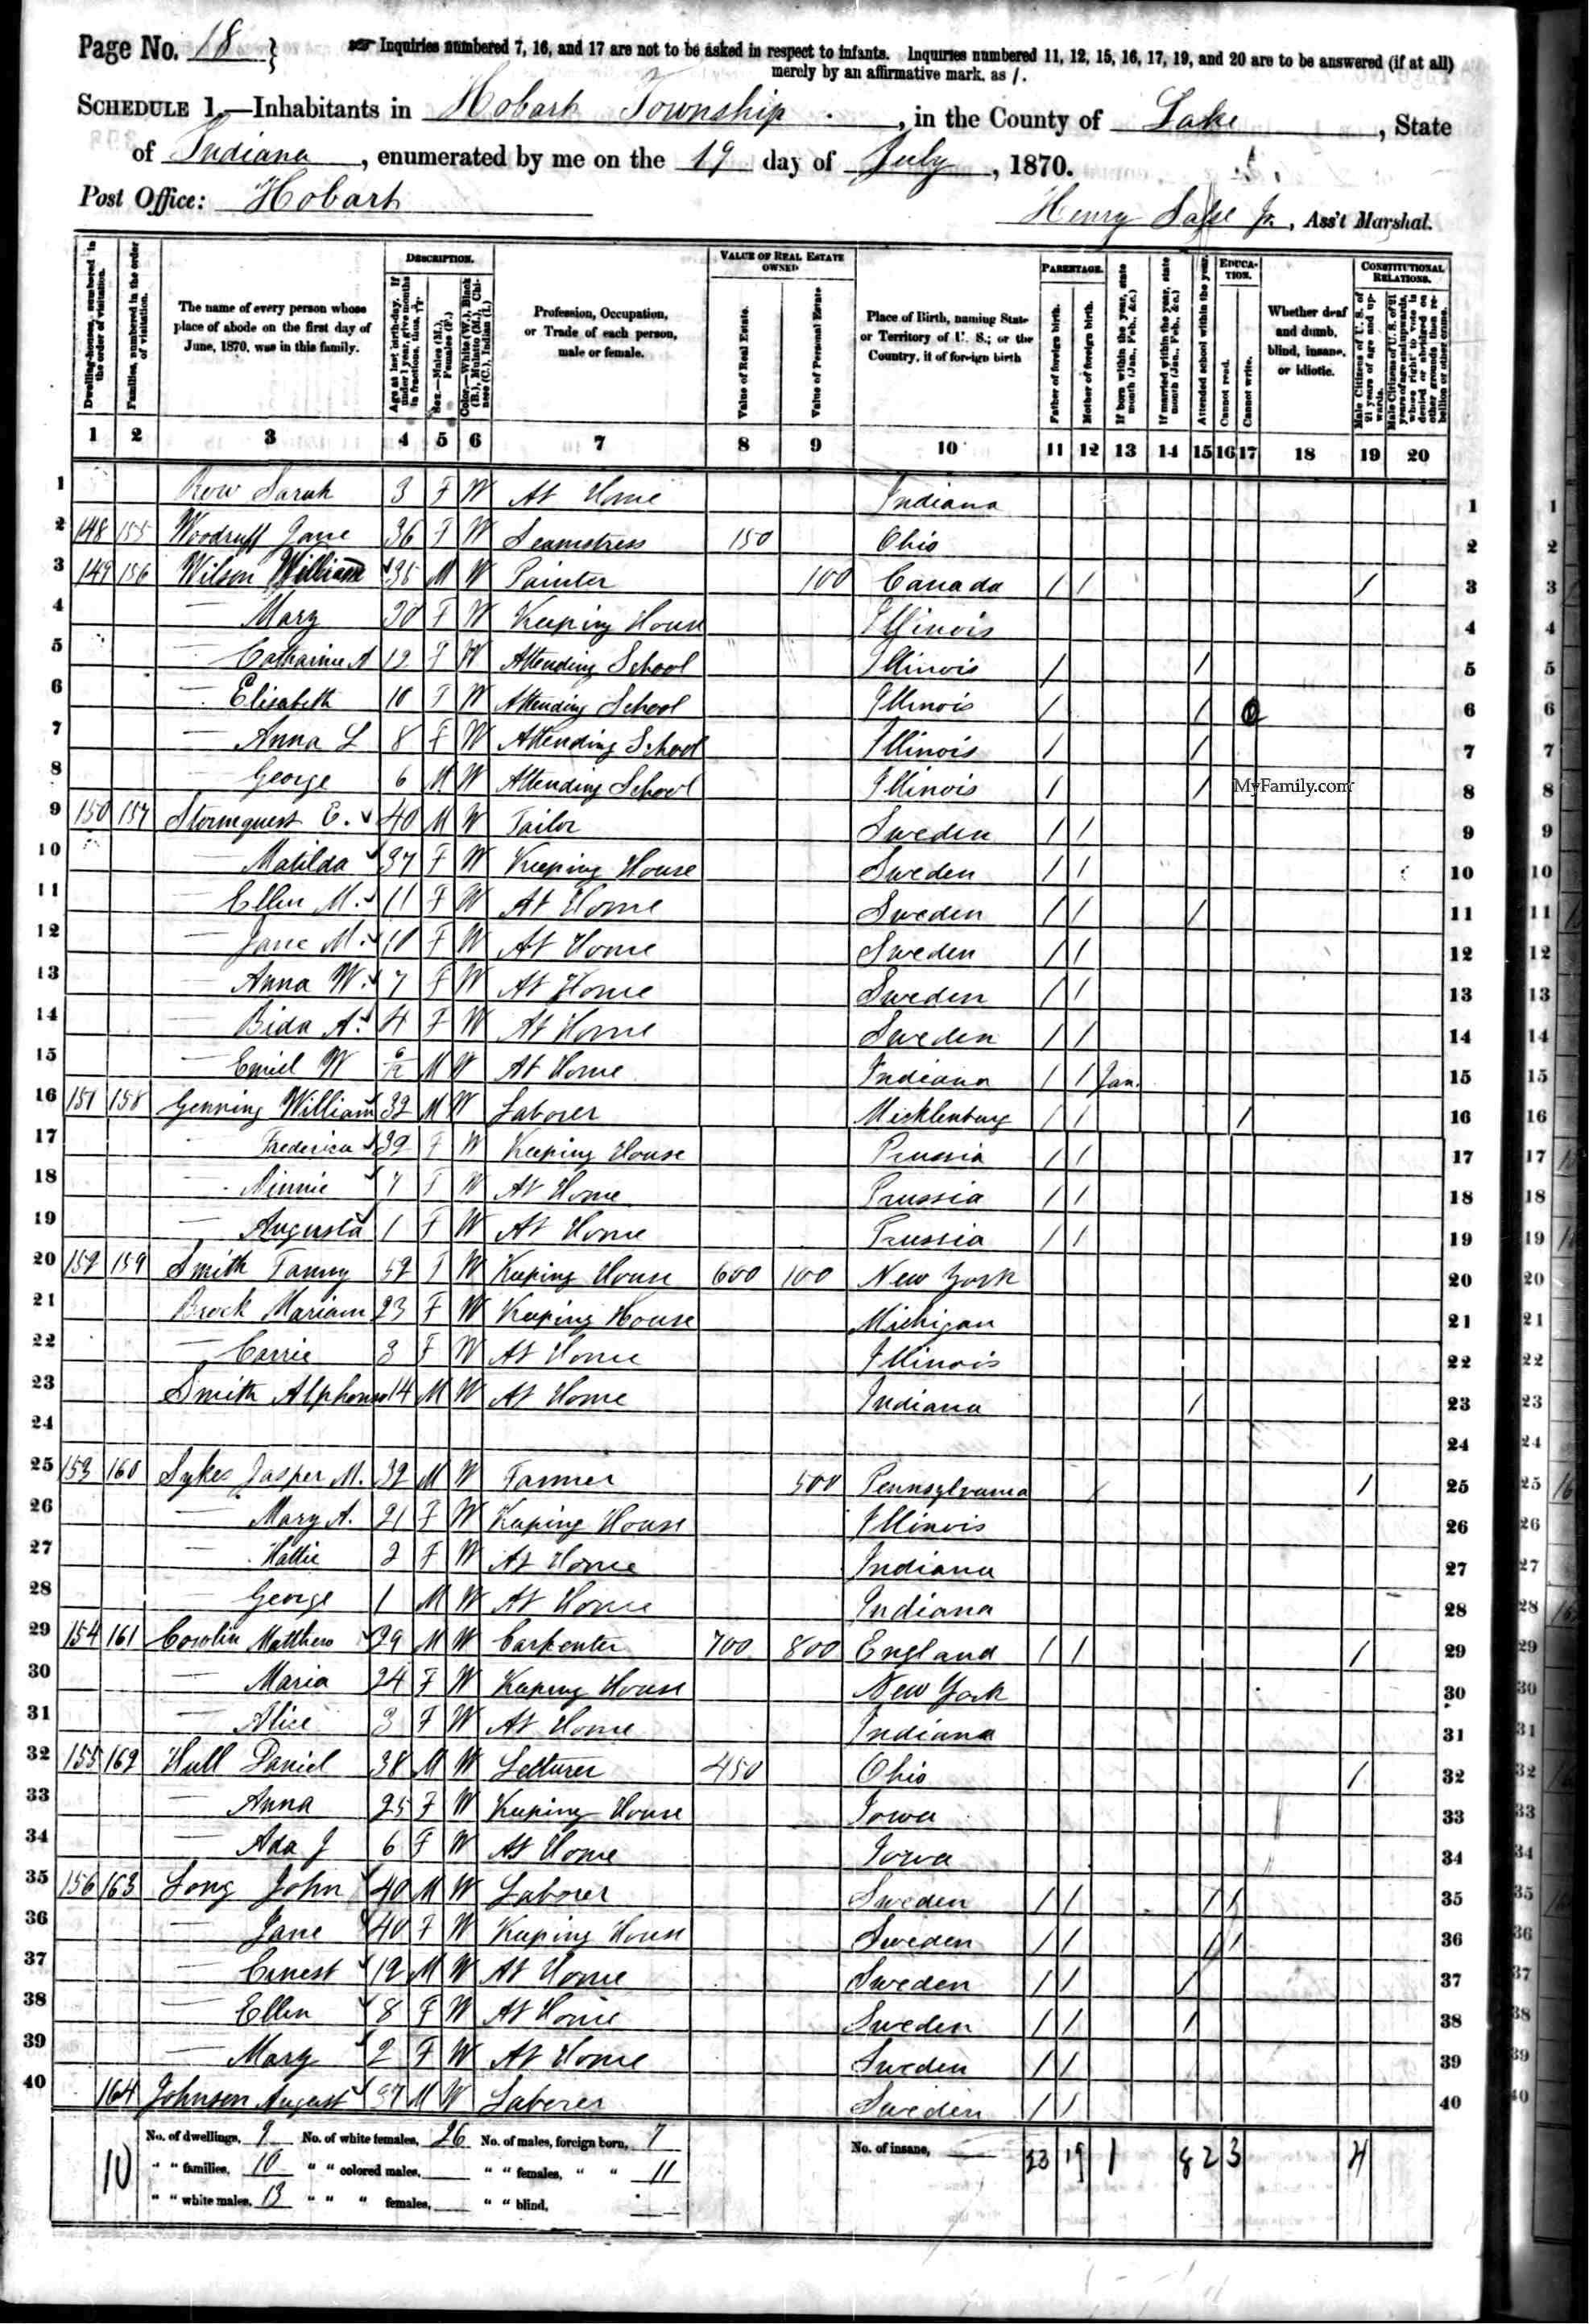 Page No. 18 } Inquiries numbered 7, 16, and 17 are not to be asked in respect to infants. Inquiries numbered 11, 12, 15, 16, 17, 19, and 20 are to be answered (if at all)
merely by an affirmative mark, as /.
SCHEDULE 1.—Inhabitants in Hobart Township, in the County of Lake, State
of Indiana, enumerated by me on the 19 day of July, 1870.
Post Office: Hobart
Henry Sasse Jr., Ass't Marshal.
Dwelling-houses, numbered in the order of visitation.
Families, numbered in the order of visitation.
The name of every person whose place of abode on the first day of June, 1870, was in this family.
DESCRIPTION.
Age at last birth-day. If under 1 year, give months in fractions, thus,
Sex.—Males (M.), Females (F.)
Color.—White (W.), Black (B.), Mulatto (M.), Chinese (C.), Indian (I.)
Profession, Occupation, or Trade of each person, male or female.
VALUE OF REAL ESTATE OWNED
Value of Real Estate.
Value of Personal Estate
Place of Birth, naming State or Territory of U. S.; or the Country, if of foreign birth
PARENTAGE.
Father of foreign birth.
Mother of foreign birth.
If born within the year, state month (Jan., Feb., &c.)
If married within the year, state month (Jan., Feb., &c.)
Attended school within the year.
EDUCATION.
Cannot read.
Cannot write.
Whether deaf and dumb, blind, insane, or idiotic.
CONSTITUTIONAL RELATIONS.
Male Citizens of U. S. of 21 years of age and upwards.
Male Citizens of U. S. of 21 years of age and upwards, whose right to vote is denied or abridged on other grounds than rebellion or other crime.
1 2 3 4 5 6 7 8 9 10 11 12 13 14 15 16 17 18 19 20
1 Row Sarah 3 F W At Home Indiana 1
2 148 155 Woodruff Jane 36 F W Seamstress 150 Ohio 2
3 149 156 Wilson William 38 M W Painter 100 Canada / / / 3
4 — Mary 30 F W Keeping House Illinois 4
5 — Catharine A 12 F W Attending School Illinois / / 5
6 — Elisabeth 10 F W Attending School Illinois / / 6
7 — Anna L 8 F W Attending School Illinois / / 7
8 — George 6 M W Attending School Illinois / / MyFamily.com 8
9 150 157 Stormquest E. 40 M W Tailor Sweden / / 9
10 — Matilda 37 F W Keeping House Sweden / / 10
11 — Ellen M. 11 F W At Home Sweden / / / 11
12 — Jane M. 10 F W At Home Sweden / / 12
13 — Anna W. 7 F W At Home Sweden / / 13
14 — Bida A. 4 F W At Home Sweden / / 14
15 — Emiel W 6/12 M W At Home Indiana / / Jan. 15
16 151 158 Genning William 32 M W Laborer Mecklenburg / / / 16
17 — Frederica 32 F W Keeping House Prussia / / 17
18 — Minnie 7 F W At Home Prussia / / 18
19 — Augusta 1 F W At Home Prussia / / 19
20 152 159 Smith Fanny 52 F W Keeping House 600 100 New York 20
21 Brock Mariam 23 F W Keeping House Michigan 21
22 — Carrie 3 F W At Home Illinois 22
23 Smith Alphonso 14 M W At Home Indiana / 23
24 24
25 153 160 Sykes Jasper M. 32 M W Farmer 500 Pennsylvania / / 25
26 — Mary A. 21 F W Keeping House Illinois 26
27 — Hattie 2 F W At Home Indiana 27
28 — George 1 M W At Home Indiana 28
29 154 161 Cowlin Matthew 29 M W Carpenter 700 800 England / / / 29
30 — Maria 24 F W Keeping House New York 30
31 — Alice 3 F W At Home Indiana 31
32 155 162 Hull Daniel 38 M W Letturer 450 Ohio / 32
33 — Anna 25 F W Keeping House Iowa 33
34 — Ada J 6 F W At Home Iowa 34
35 156 163 Long John 40 M W Laborer Sweden / / / / 35
36 — Jane 40 F W Keeping House Sweden / / / / 36
37 — Ernest 12 M W At Home Sweden / / / 37
38 — Ellen 8 F W At Home Sweden / / / 38
39 — Mary 2 F W At Home Sweden / / 39
40 164 Johnson August 37 M W Laborer Sweden / / 40
No. of dwellings, 9 No. of white females, 26 No. of males, foreign born, 7 No. of insane, — 23 19 1 8 2 3 4
10 " " families, 10 " " colored males, — " " females, " " 11
" " white males, 13 " " " females, — " " blind, —